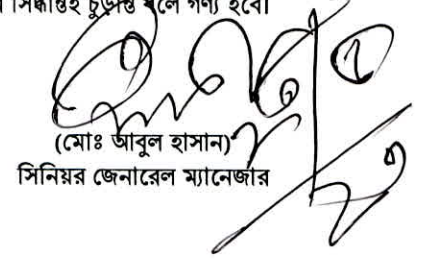 সিদ্ধান্তই চুড়ান্ত বলে গণ্য হবে।
(মোঃ আবুল হাসান)
সিনিয়র জেনারেল ম্যানেজার